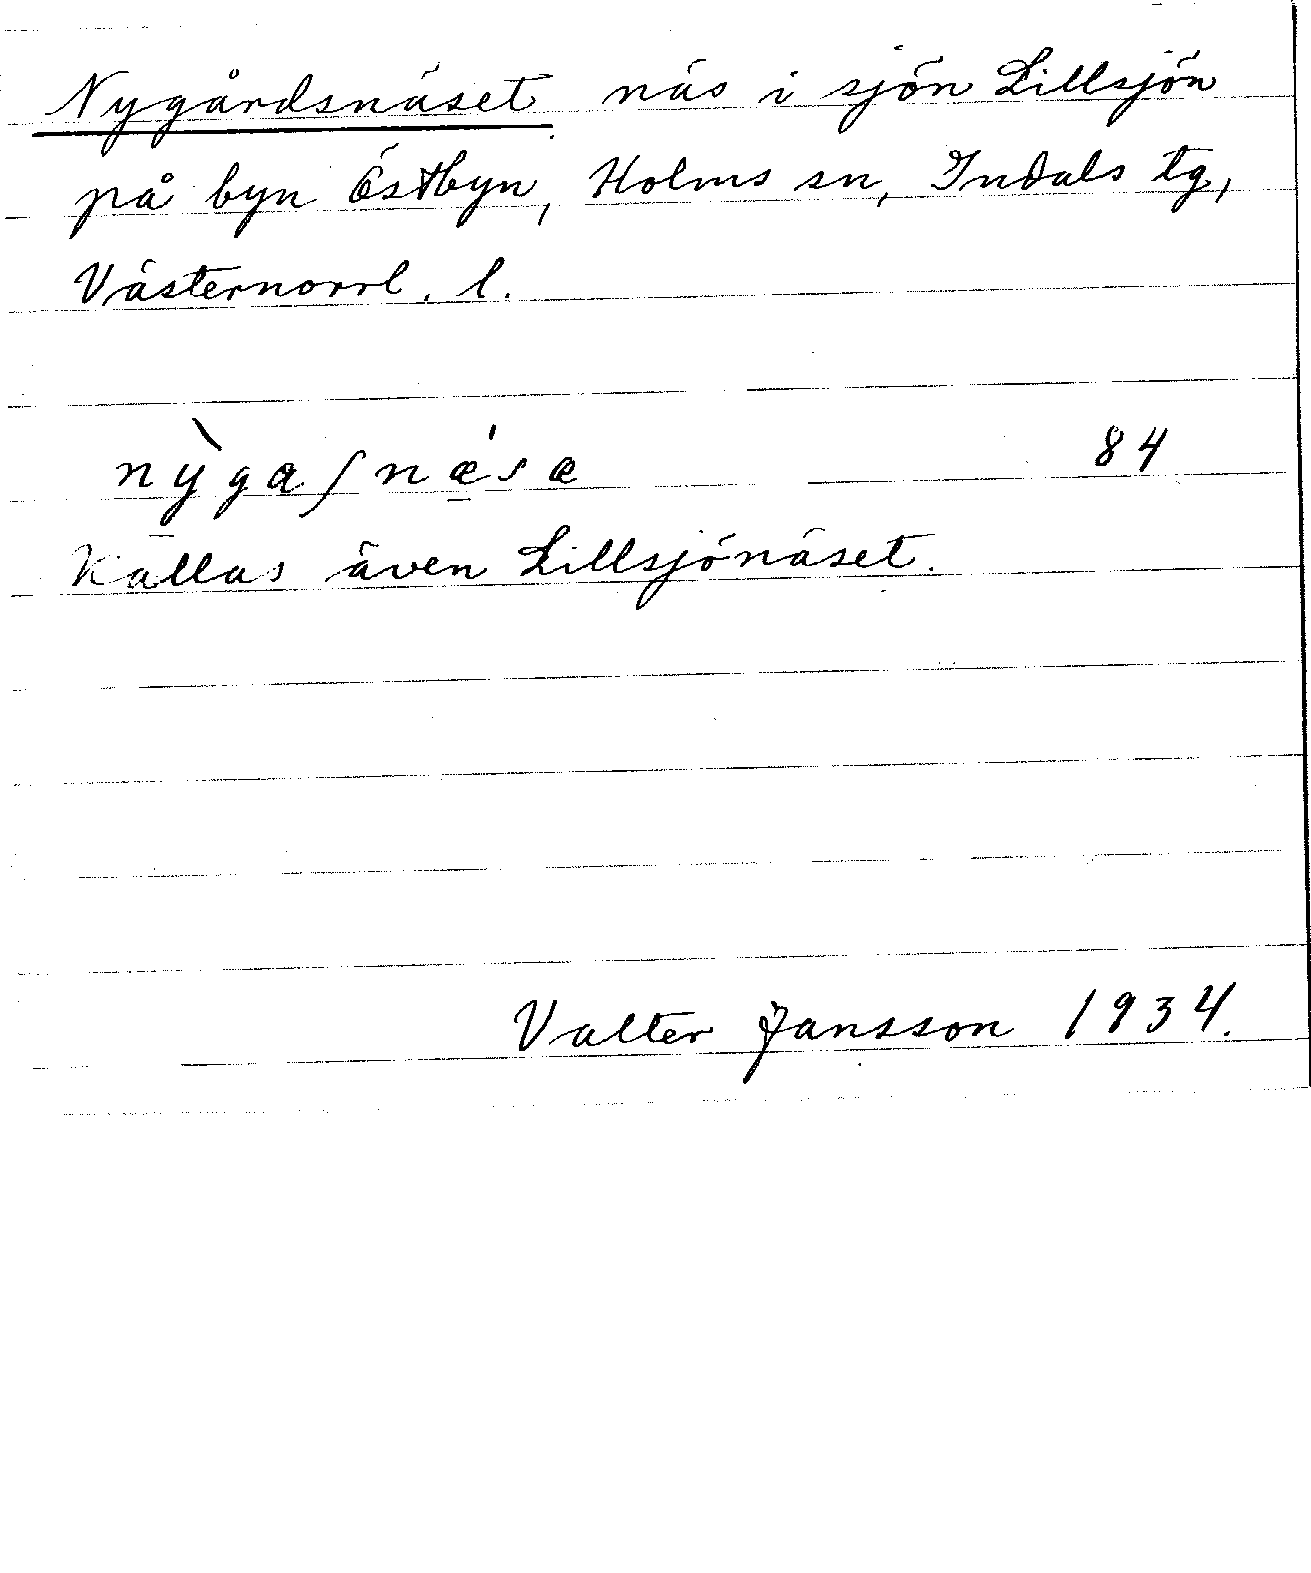 Nygårdsnäset näs i sjön Lillsjön
på byn Östbyn, Holms sn, Indals tg,
Västernorrl. l.
nỳgaʃnǽ̠sæ 84
Kallas även Lillsjönäset.
Valter Jansson 1934.